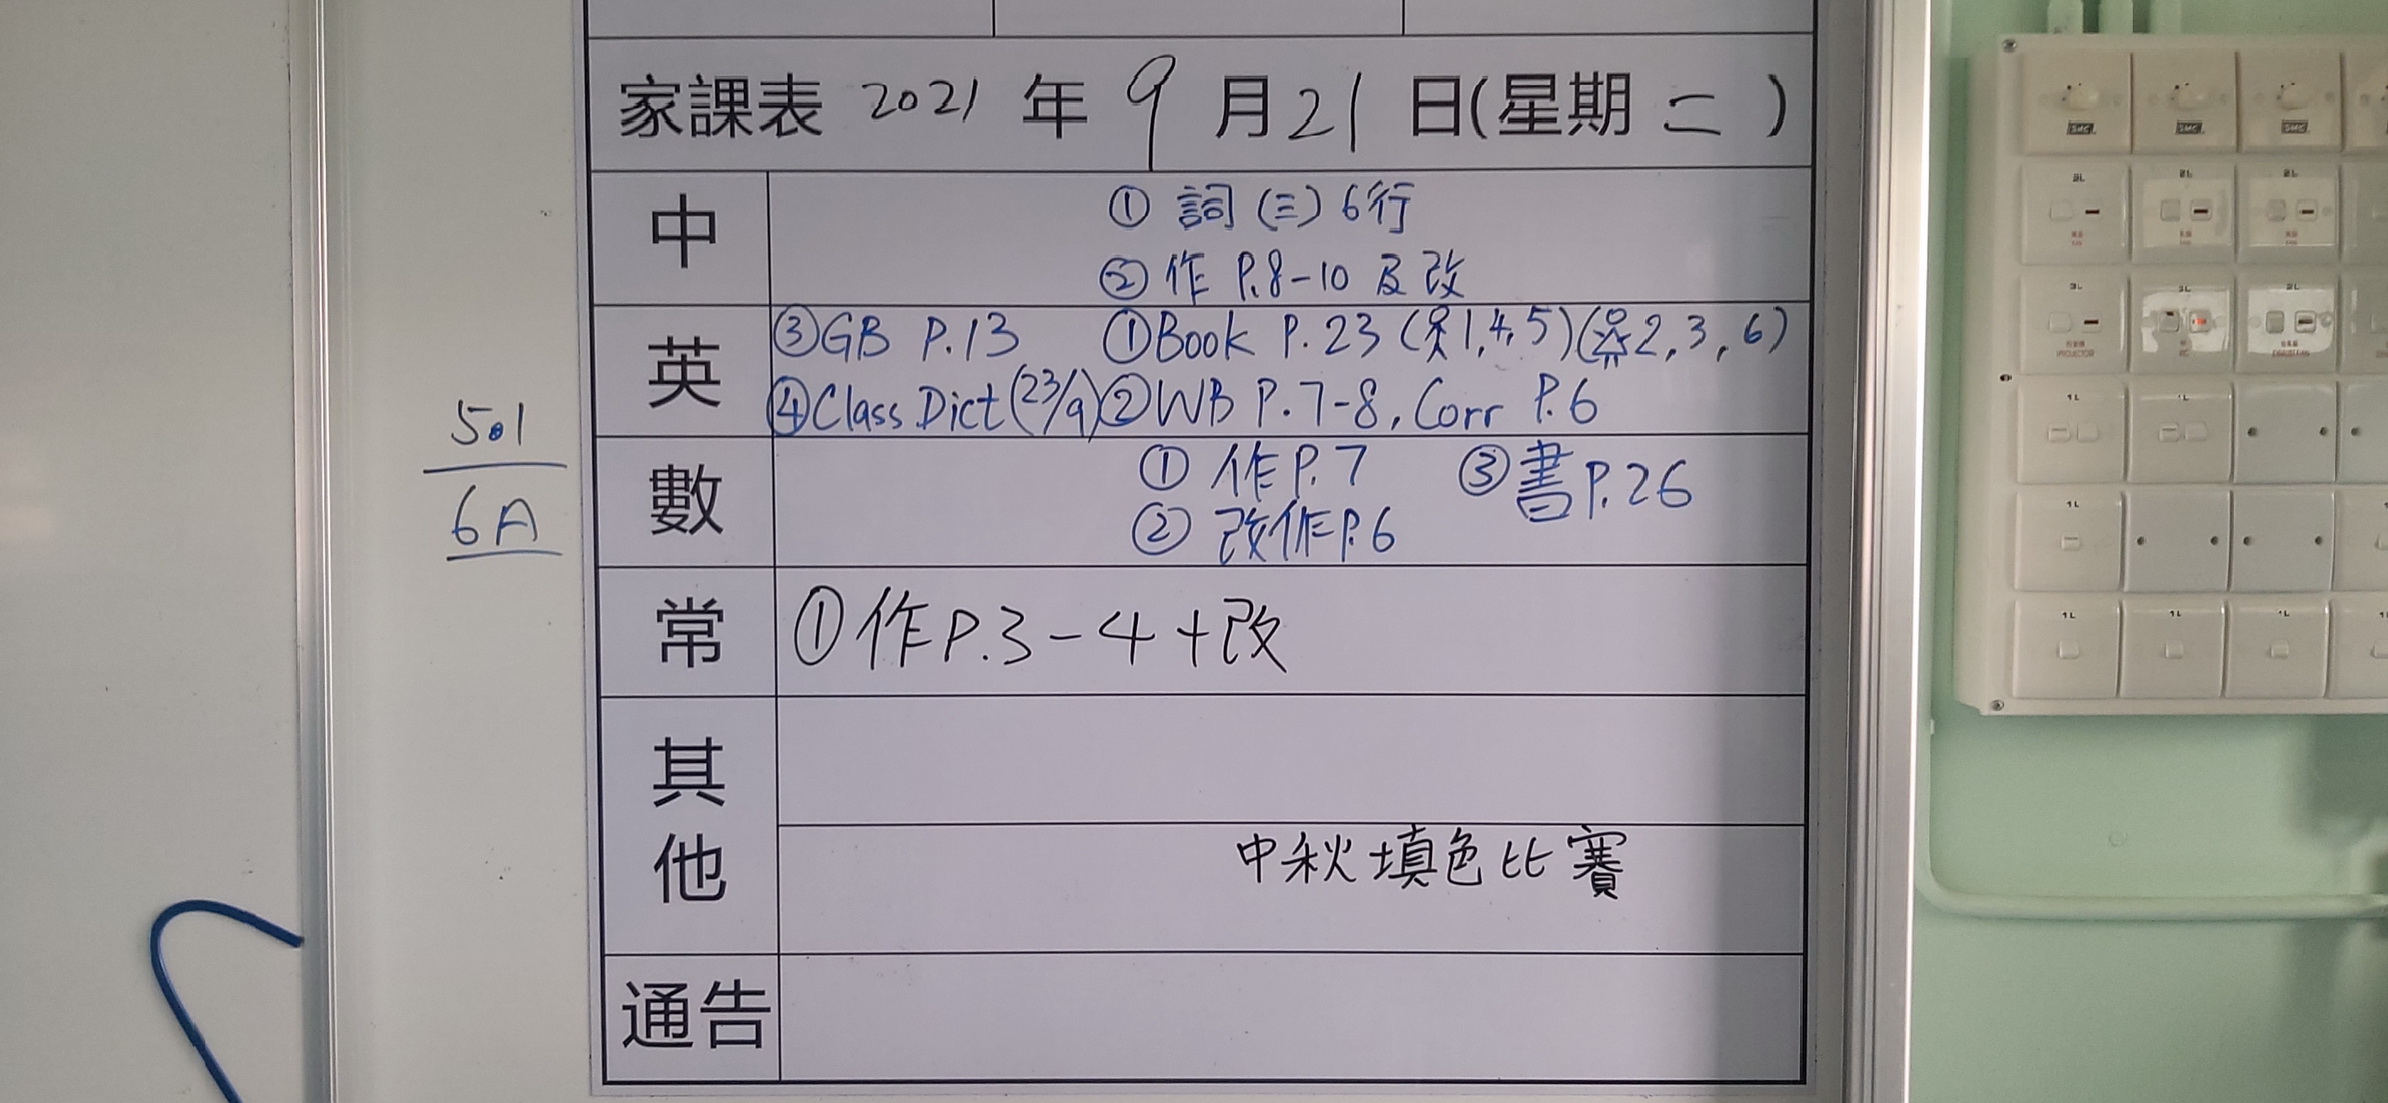 家課表 2021 年 9 月 21 日(星期 二 )
中
① 詞 (三) 6行
② 作 P.8-10 及改
英
③GB P.13 ①Book P.23 (1,4,5)(2,3,6)
④Class Dict (23/9) ②WB P.7-8, Corr P.6
數
① 作P.7 ③書P.26
② 改作P.6
常
①作P.3-4+改
其他
中秋填色比賽
通告
501
6A
SMC SMC SMC
3L 2L 2L
3L 3L 2L
PROJECTOR
1L 1L
1L
1L 1L 1L